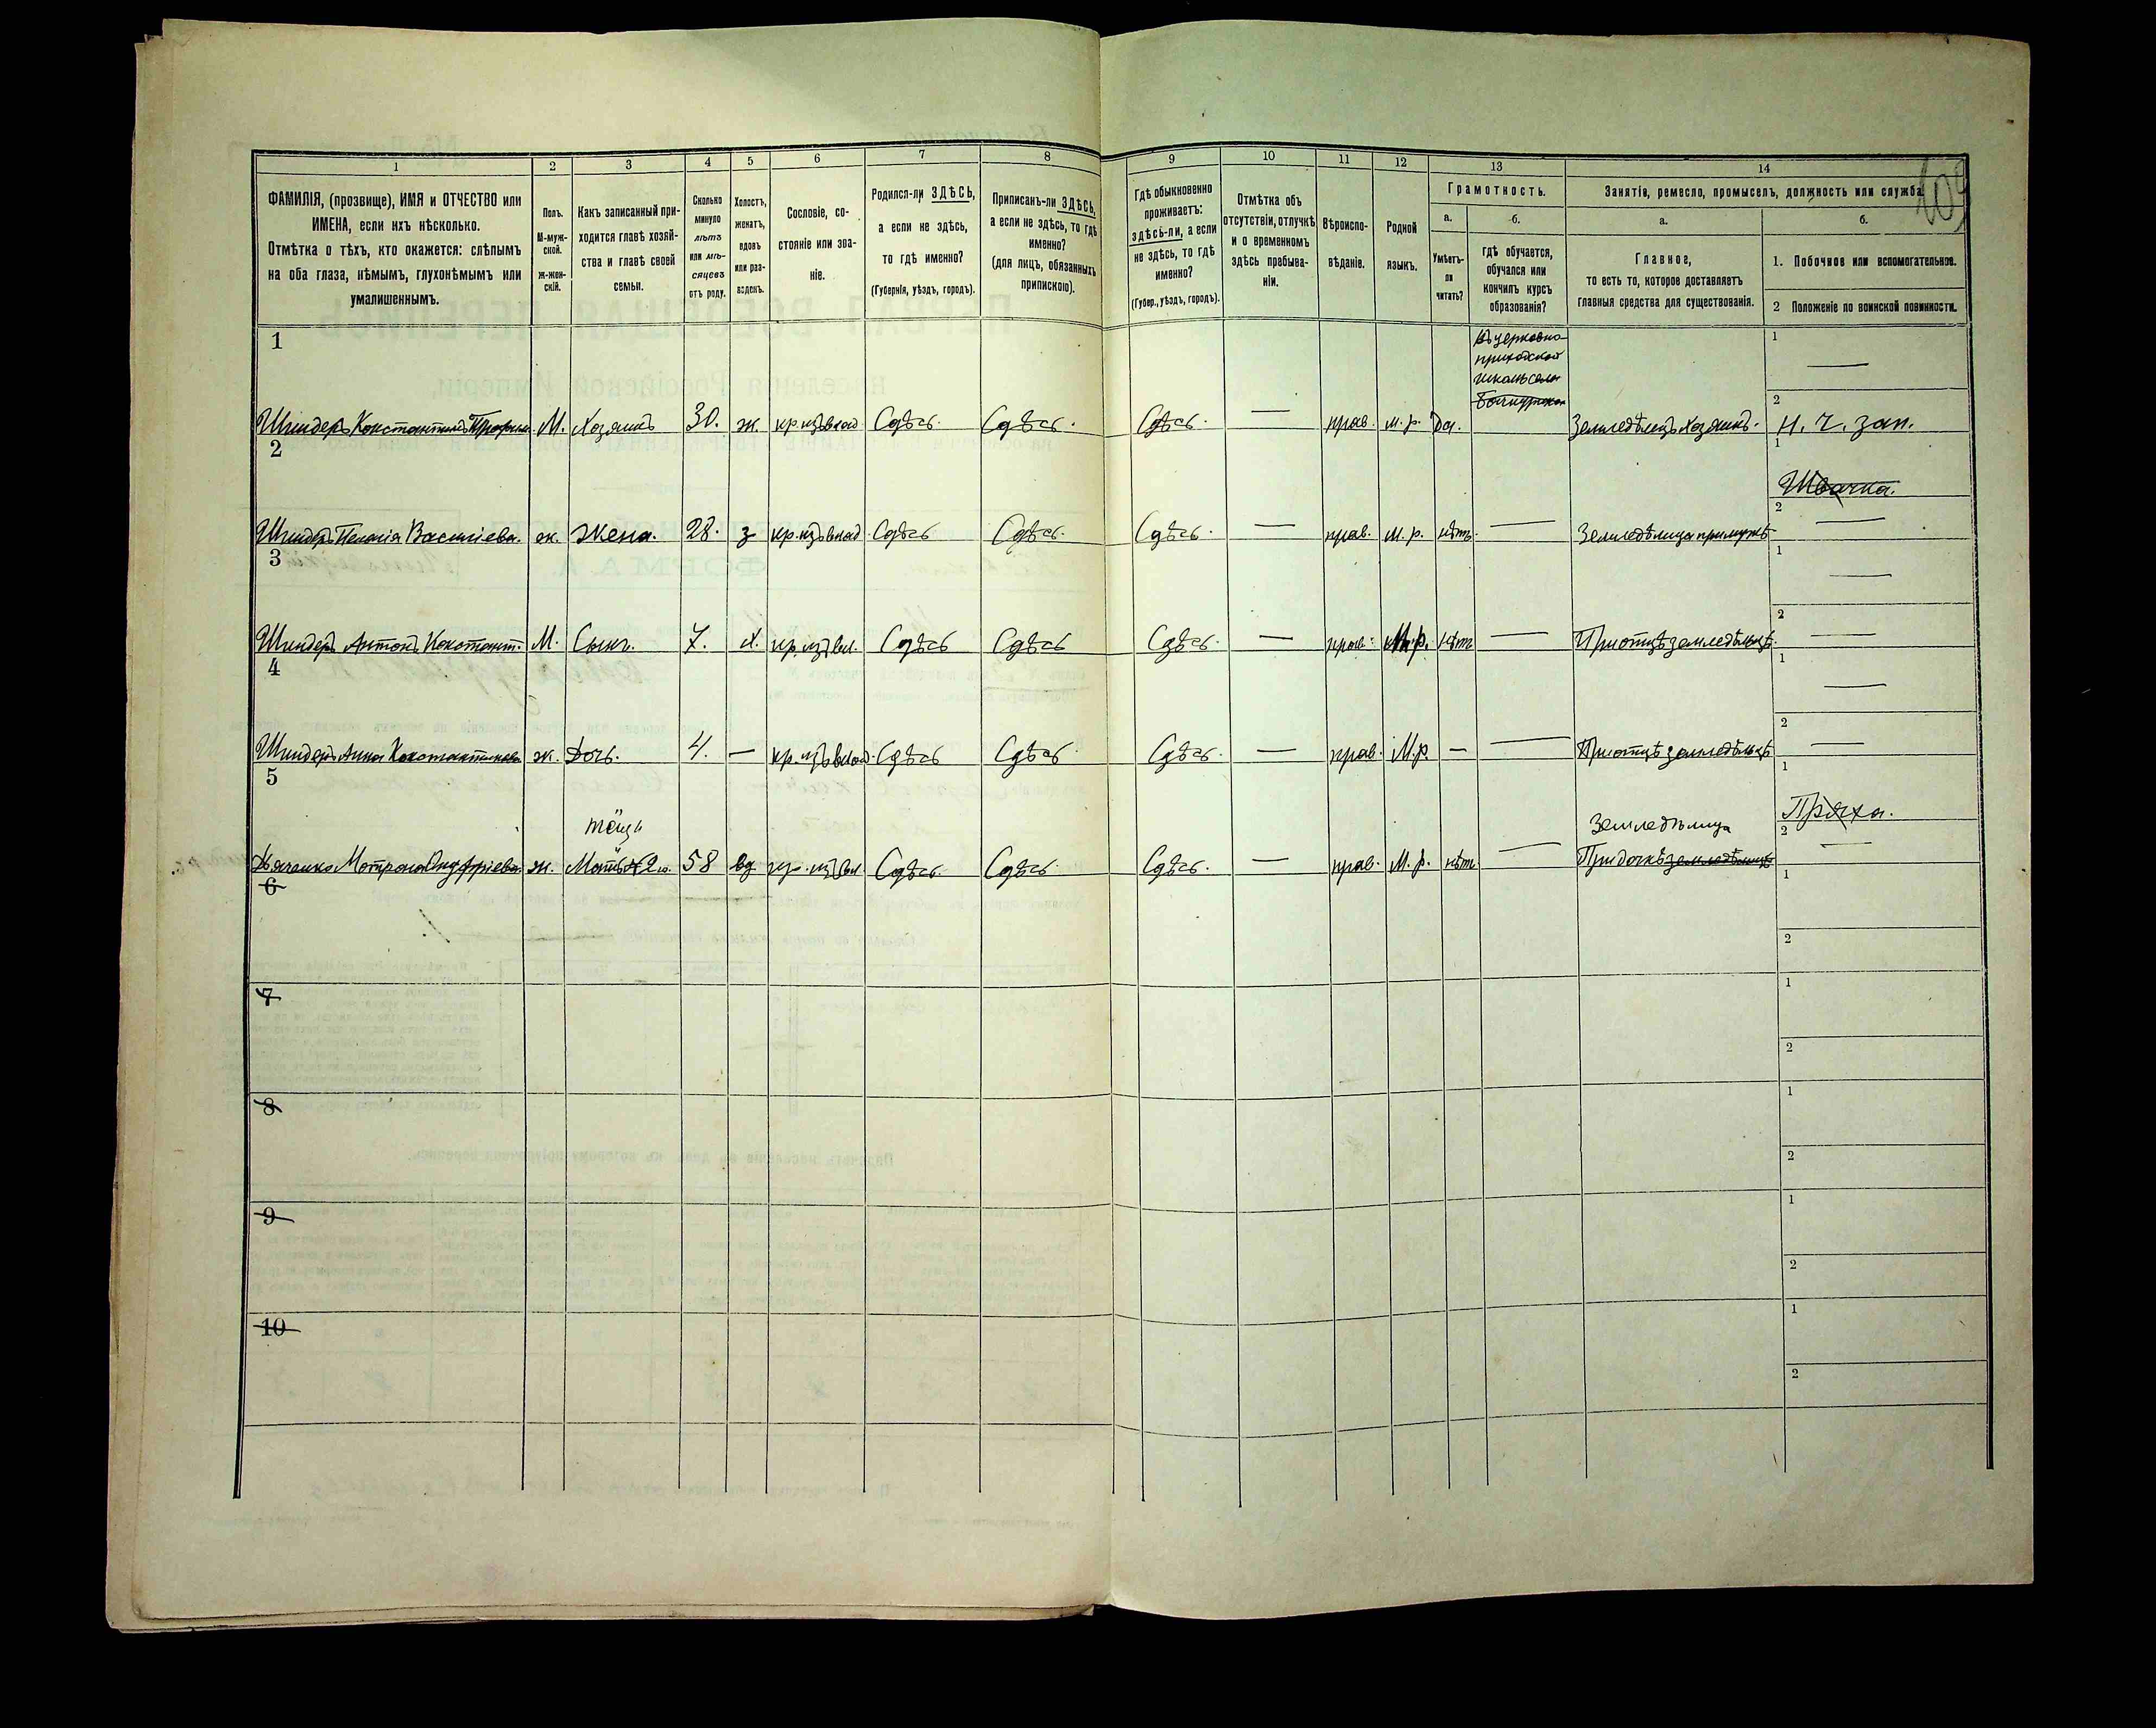 1 2 3 4 5 6 7 8 9 10 11 12 13 14
ФАМИЛІЯ, (прозвище), ИМЯ и ОТЧЕСТВО или
ИМЕНА, если ихъ нѣсколько.
Отмѣтка о тѣхъ, кто окажется: слѣпымъ
на оба глаза, нѣмымъ, глухонѣмымъ или
умалишеннымъ.
Полъ.
М-муж-
ской.
ж-жен-
скій.
Какъ записанный при-
ходится главѣ хозяй-
ства и главѣ своей
семьи.
Сколько
минуло
лѣтъ
или мѣ-
сяцевъ
отъ роду.
Холостъ,
женатъ,
вдовъ
или раз-
веденъ.
Сословіе, со-
стояніе или зва-
ніе.
Родился-ли ЗДѢСЬ,
а если не здѣсь,
то гдѣ именно?
(Губернія, уѣздъ, городъ).
Приписанъ-ли ЗДѢСЬ,
а если не здѣсь, то гдѣ
именно?
(для лицъ, обязанныхъ
припискою).
Гдѣ обыкновенно
проживаетъ:
здѣсь-ли, а если
не здѣсь, то гдѣ
именно?
(Губер., уѣздъ, городъ).
Отмѣтка объ
отсутствіи, отлучкѣ
и о временномъ
здѣсь пребыва-
ніи.
Вѣроиспо-
вѣданіе.
Родной
языкъ.
Грамотность.
а.
Умѣетъ-
ли
читать?
б.
гдѣ обучается,
обучался или
кончилъ курсъ
образованія?
Занятія, ремесло, промыселъ, должность или служба.
а.
Главное,
то есть то, которое доставляетъ
главныя средства для существованія.
б.
1. Побочное или вспомогательное.
2 Положеніе по воинской повинности.
1
Въ церковно-
приходской
школѣ села
1
—
2
Шиндеръ Константинъ М. Хозяинъ 30. ж. кр. изъ влад Сдѣсь. Сдѣсь. Сдѣсь. — прав. м. р. да. Земледѣлецъ хозяинъ. н. ч. зап.
2
1
Швачка.
2
Шиндеръ Пелагія Василіева. ж. Жена. 28. з кр. изъ влад Сдѣсь Сдѣсь. Сдѣсь. — прав. м. р. нѣтъ. — Земледѣлица при мужѣ —
3
1
—
2
Шиндеръ Антонъ Констант. М. Сынъ. 7. х. кр. изъ вл. Сдѣсь Сдѣсь Сдѣсь. — прав. М. р. нѣтъ — При отцѣ земледѣльцѣ. —
4
1
—
2
Шиндеръ Анна Константинова ж. Дочь. 4. — кр. изъ влад. Сдѣсь Сдѣсь Сдѣсь. — прав. М. р. — — При отцѣ земледѣльцѣ —
5
1
тёща Земледѣлица Пряха.
2
Дяченко Мотрона Онуфріева. ж. Мать 58 вд кр. изъ вл. Сдѣсь. Сдѣсь. Сдѣсь. — прав. М. р. нѣтъ — При дочкѣ земледѣлицѣ —
6
1
2
7
1
2
8
1
2
9
1
2
10
1
2